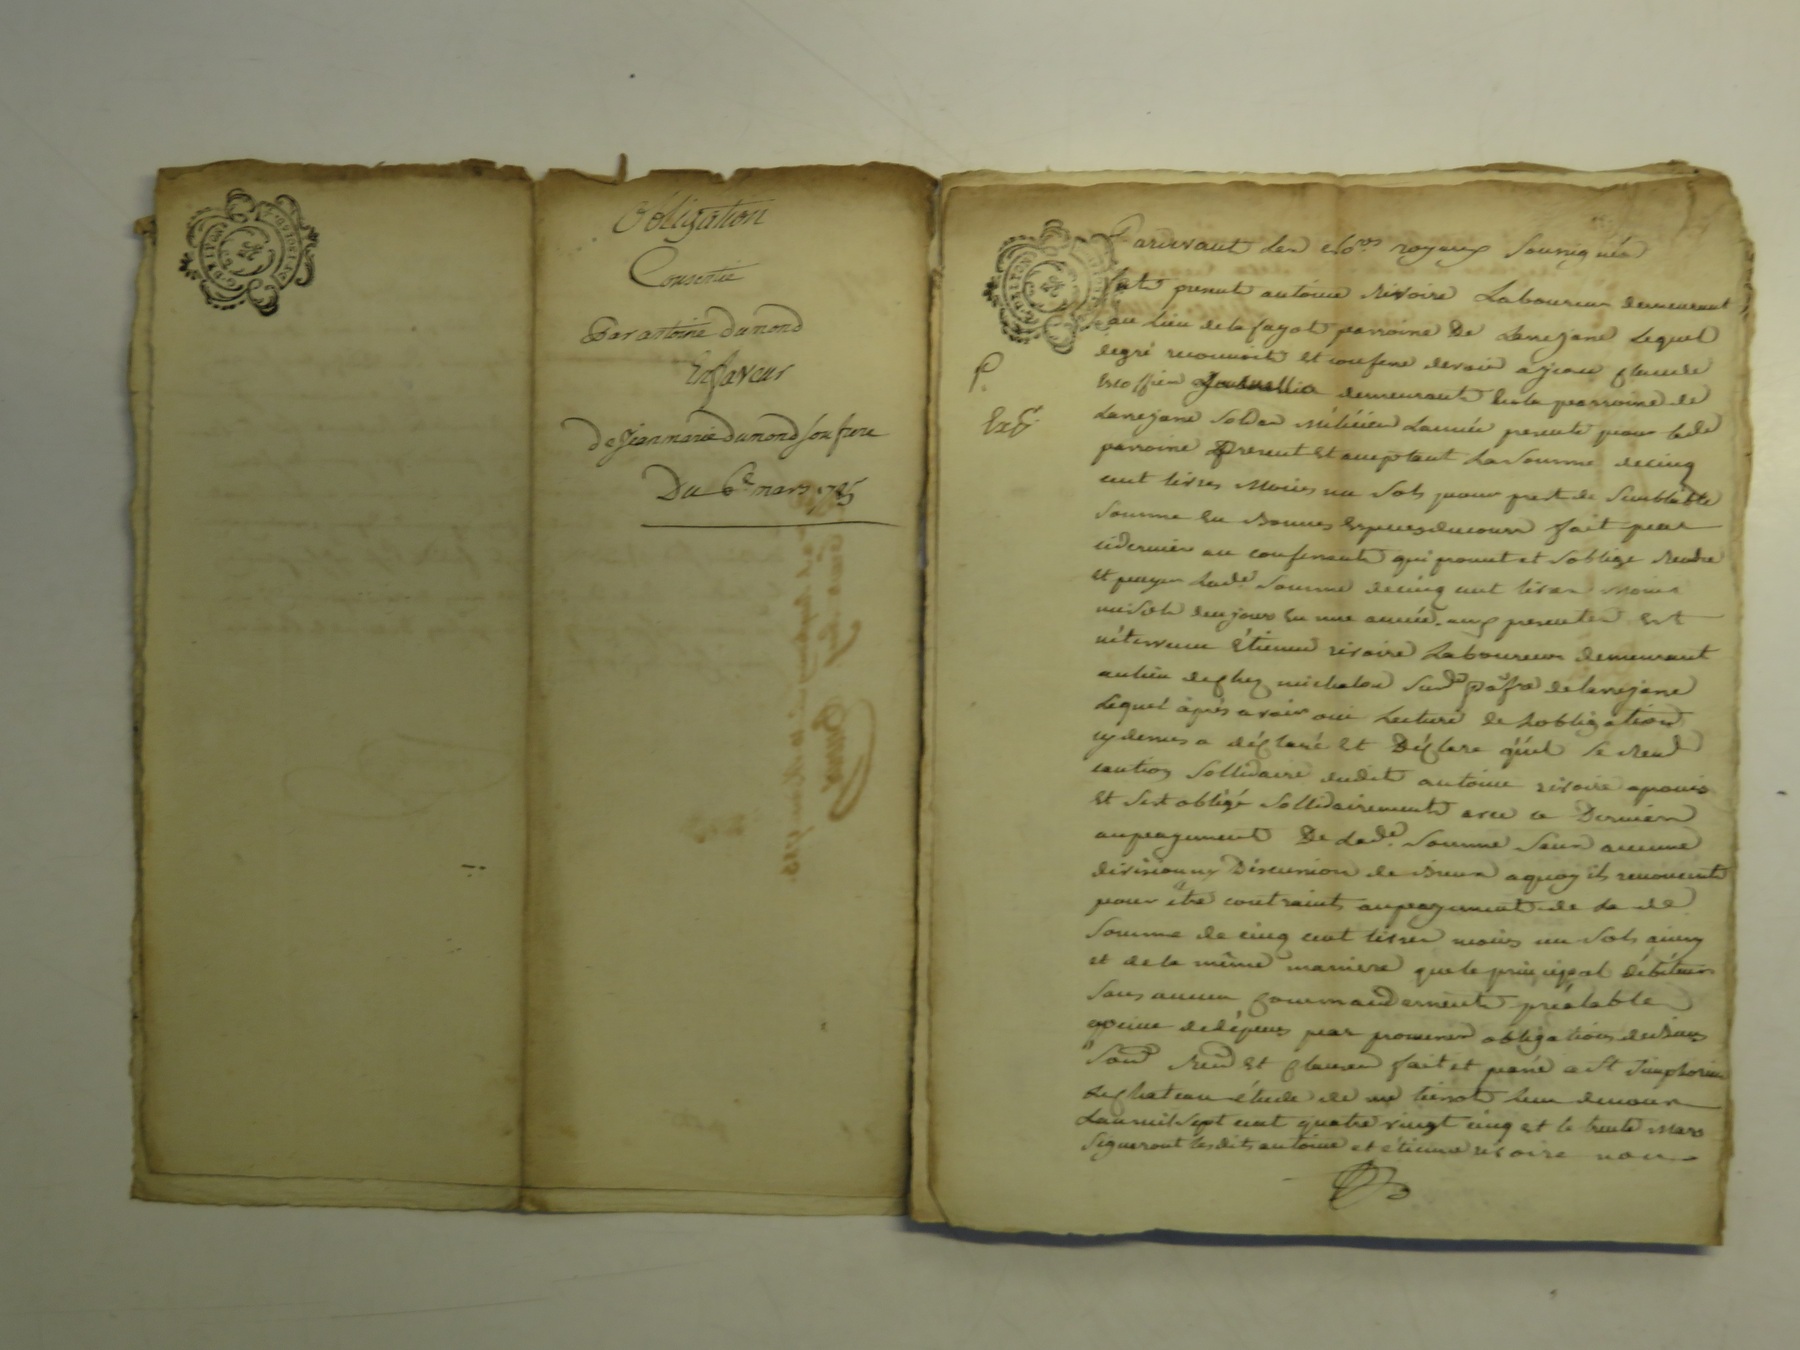 Obligation
Consentie
Par antoine dumond
En faveur
de Jean marie dumond son frere
Du 6e mars 1785
Pardevant les no.res royaux soussignés
fut present antoine rivoire Laboureur demeurant
au lieu de la fayol parroisse De Larrejasse Lequel
degré reconnoit et confesse devoir a jean claude
demeurant en la parroisse de
Larrejasse soldat milicien L'année presente pour lade
parroisse present et acceptant La somme de cinq
cent livres Moins un sols pour prest de semblable
somme en Bonnes especes du cours fait par
ce dernier au confessant qui promet et s'oblige rendre
et payer lade somme de cinq cent livres moins
un sols dans jour en une année. aux presentes est
intervenu Etienne rivoire Laboureur demeurant
au lieu de chez michalon de larrejasse
Lequel après avoir oui Lecture de L'obligation
cy dessus a déclaré et Déclare qu'il se rend
caution sollidaire dudit antoine rivoire
et s'est obligé sollidairement avec ce Dernier
au payement De lade somme sans aucune
division ny Discussion de Biens a quoy ils renoncent
pour être contraint au payement de la de
somme de cinq cent livres moins un sols ainsy
et de la même maniere que le principal débiteur
sans aucun commandement préalable
a peine de dépens par promesses obligations de Biens
et clauses fait et passé a St Simphorien
Le chateau étude de me tienot l'un de nous
L'an mil sept cent quatre vingt cinq et le trente Mars
signeront lesdits antoine et étienne rivoire non